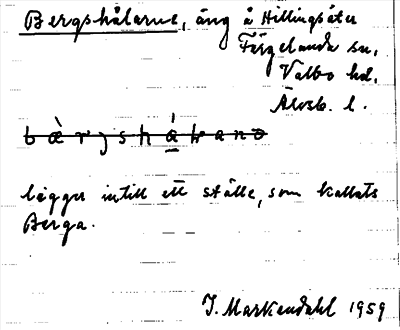 Bergshålarne, äng å Hillingsäter
Färgelanda sn,
Valbo hd.
Älvsb. l.
ligger intill ett ställe, som kallats
Berga.
J. Markendahl 1959